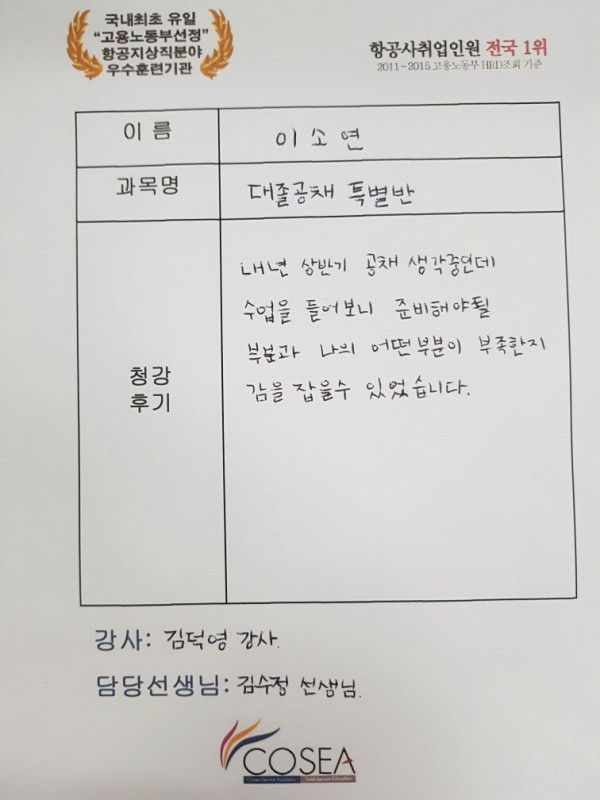 국내최초 유일
“고용노동부선정”
항공지상직분야
우수훈련기관
항공사취업인원 전국 1위
2011-2015 고용노동부 HRD조회 기준
이 름
이소연
과목명
대졸공채 특별반
청강
후기
내년 상반기 공채 생각중인데
수업을 들어보니 준비해야될
부분과 나의 어떤부분이 부족한지
감을 잡을수 있었습니다.
강사: 김덕영 강사.
담당선생님: 김수정 선생님.
COSEA